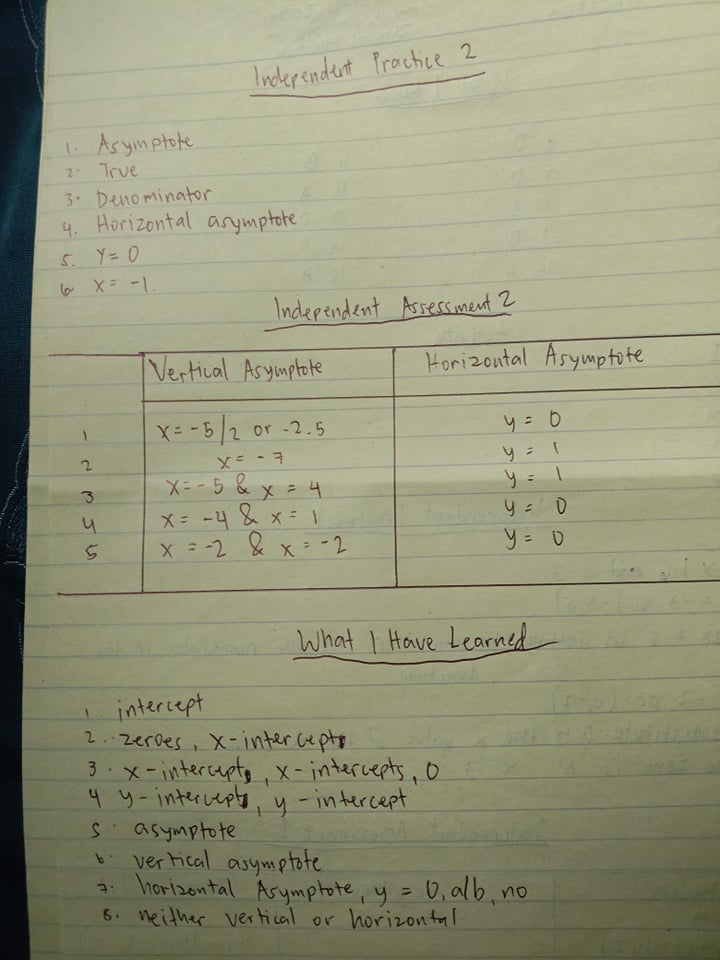 Independent Practice 2
1. Asymptote
2. True
3. Denominator
4. Horizontal asymptote
5. Y = 0
6 X = -1.
Independent Assessment 2
Vertical Asymptote Horizontal Asymptote
1 x = -5/2 or -2.5 y = 0
2 x = -7 y = 1
3 x = -5 & x = 4 y = 1
4 x = -4 & x = 1 y = 0
5 x = -2 & x = -2 y = 0
What I Have Learned
1. intercept
2. zeroes, x-intercept
3. x-intercept, x-intercepts, 0
4 y-intercept, y-intercept
5. asymptote
6. vertical asymptote
7. horizontal Asymptote, y = 0, a/b, no
8. neither vertical or horizontal